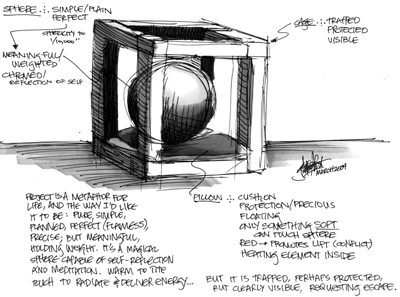 SPHERE ∴ SIMPLE/PLAIN
PERFECT
SPHERICITY TO
1/10,000"
MEANINGFUL/
WEIGHTED
CHROMED/
REFLECTION OF SELF
CAGE ∴ TRAPPED
PROTECTED
VISIBLE
MARCH2009
PILLOW ∴ CUSHION
PROTECTION/PRECIOUS
FLOATING
ONLY SOMETHING SOFT
CAN TOUCH SPHERE
RED → PROMOTES LIFT (CONFLICT)
HEATING ELEMENT INSIDE
PROJECT IS A METAPHOR FOR
LIFE, AND THE WAY I'D LIKE
IT TO BE: PURE, SIMPLE,
PLANNED, PERFECT (FLAWLESS),
PRECISE; BUT MEANINGFUL,
HOLDING WEIGHT. IT'S A MAGICAL
SPHERE CAPABLE OF SELF-REFLECTION
AND MEDITATION. WARM TO THE
TOUCH TO RADIATE & DELIVER ENERGY...
BUT IT IS TRAPPED, PERHAPS PROTECTED,
BUT CLEARLY VISIBLE, REQUESTING ESCAPE.